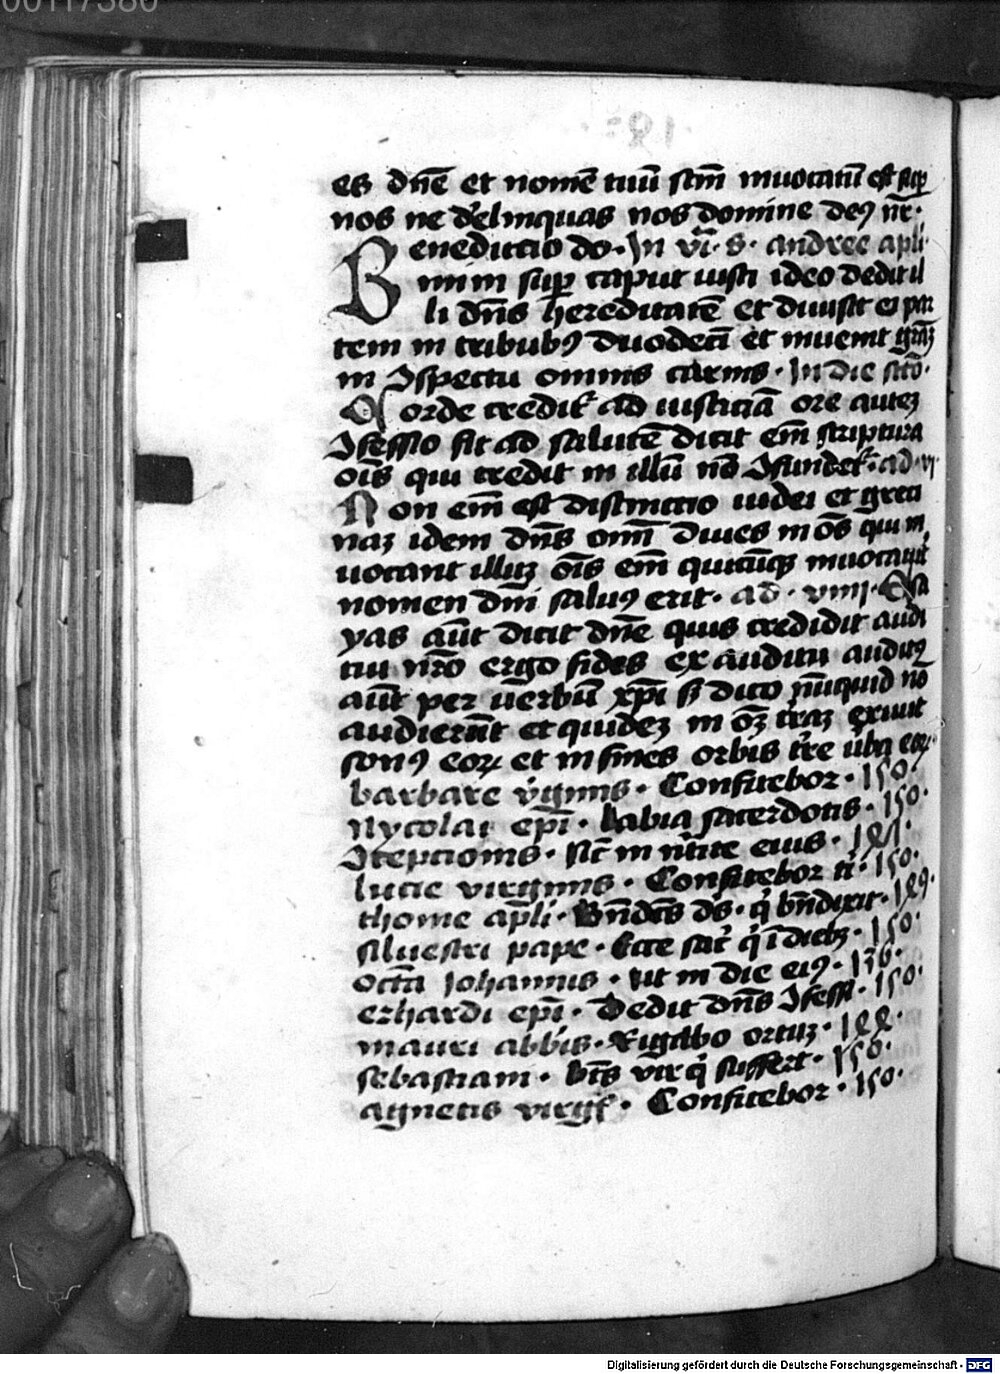 00117380
es dn̄e et nomē tuū sc̄m inuocatū est sup̄
nos ne d'elinquas nos domine de9 nr̄·
Benedictio do· In vī· s· andree apl̄i·
mini sup̄ caput iusti ideo dedit il
li dn̄s hereditatē et diuisit ei par
tem in tribub9 duodeci et inuenit grāꝫ
in ꝯspectu omnis carnis· In die sc̄o·
Corde credit᷑ ad iusticiā ore auteꝫ
ꝯfessio fit ad salutē dicit em̄ scriptura
oīs qui credit in illū nō ꝯfundet᷑· ad· vi
Non em̄ est distinctio iudei et greci
naꝫ idem dn̄s oīm diues in oēs qui in
uocant illuꝫ oīs em̄ quicūqꝫ inuocauit
nomen dn̄i salu9 erit· ad· viiii· Ysa
yas aūt dicit dn̄e quis credidit audi
tui nr̄o ergo fides ex auditu audit9
aūt per uerbū xp̄i sꝫ dico nūquid nō
audierūt et quideꝫ in oēꝫ tr̄aꝫ exiuit
son9 eoꝝ et in fines orbis tr̄re ūba eoꝝ·
barbare v̄ginis· Confitebor· 150·
Nycolai ep̄i· Labia sacerdotis· 150·
ꝯceptionis· sic̄ in mr̄tite eius· 141·
lucie virginis· Confitebor ti· 150·
thome apl̄i· Bn̄dc̄s ds̄· q̇ bn̄dixit· 149·
siluestri pape· Ecce sac᷑ q̇ ī diebꝫ· 150·
Octā Johannis· vt in die ei9· 136·
erhardi ep̄i· Dedit dn̄s ꝯfessi· 150·
mauri abbis· Rigabo ortuꝫ· 144·
sebastiani· bt̄s vir q̇ suffert· 150·
agnetis virgīs· Confitebor· 150·
Digitalisierung gefördert durch die Deutsche Forschungsgemeinschaft - DFG